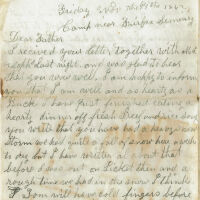 Friday Feb the 6th 1862
Camp near Fairfax Seminary
Dear Father
I received your letter together with
last night, and was glad to hear
that you were well. I am happy to inform
you that I am well and as hearty as a
Buck. I have just finished eating a
hearty dinner off fresh Beef and
you write that you have had a heavy snow
Storm we had quite a fall of snow here
to day but I have written about that
before I was out on Picket then and a
rough time we had in the snow I think
Tom will new cold fingers before